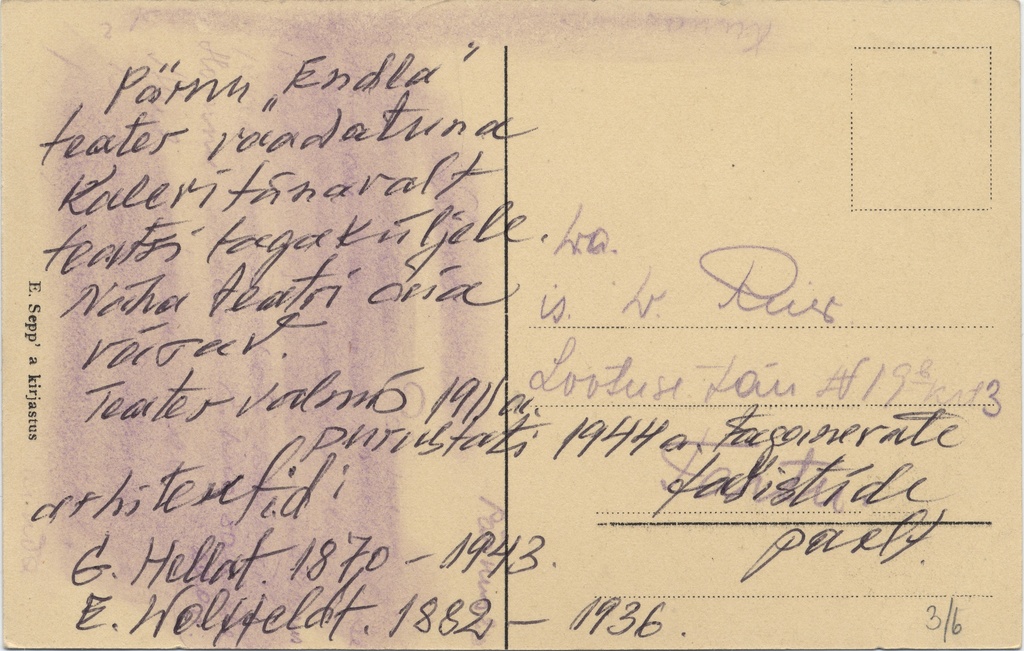 Pärnu „Endla"
teater vaadatuna
Kalevi tänavalt
teatri tagaküljele.
Näha teatri õüa
värav.
Teater valmis 1911 a.
purustati 1944 a. taganevate
fašistide
poolt.
arhitektid:
G. Hellat. 1870 – 1943.
E. Wolffeldt. 1882 – 1936.
E. Sepp'a kirjastus
Lootuse tän # 19
3/6